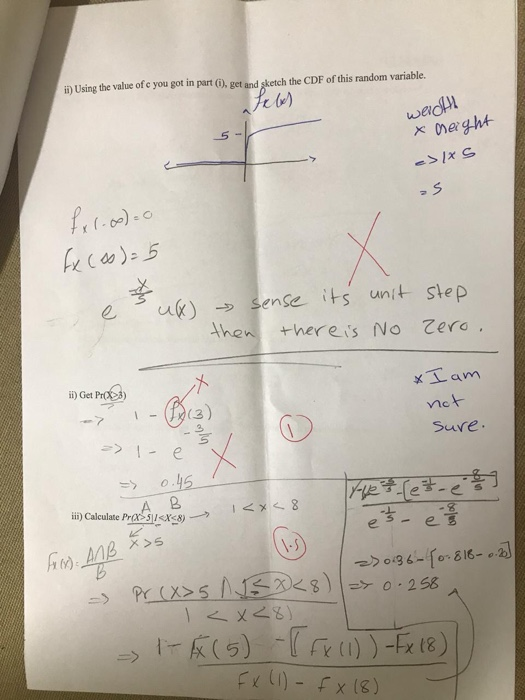 ii) Using the value of c you got in part (i), get and sketch the CDF of this random variable.
Fx(x)
5
width
x height
=> 1 x 5
= 5
fx(-∞) = 0
fx(∞) = 5
e^(-x/5) u(x) → sense its unit step
then there is No Zero.
ii) Get Pr(X>3)
=> 1 - fx(3)
* I am
not
sure.
1
=> 1 - e^(-3/5)
=> 0.45
A B
iii) Calculate Pr(X>5|1<X<8) → 1 < x < 8
x > 5
1.5
Fx(x) = A∩B / B
=> Pr (x>5 ∩ 1≤x<8) / 1 < x < 8)
=> 1 - Fx(5) - [(Fx(1)) - Fx(8) / Fx(1) - fx(8)
=> 0.36 - [0.818 - 0.2]
=> 0.258